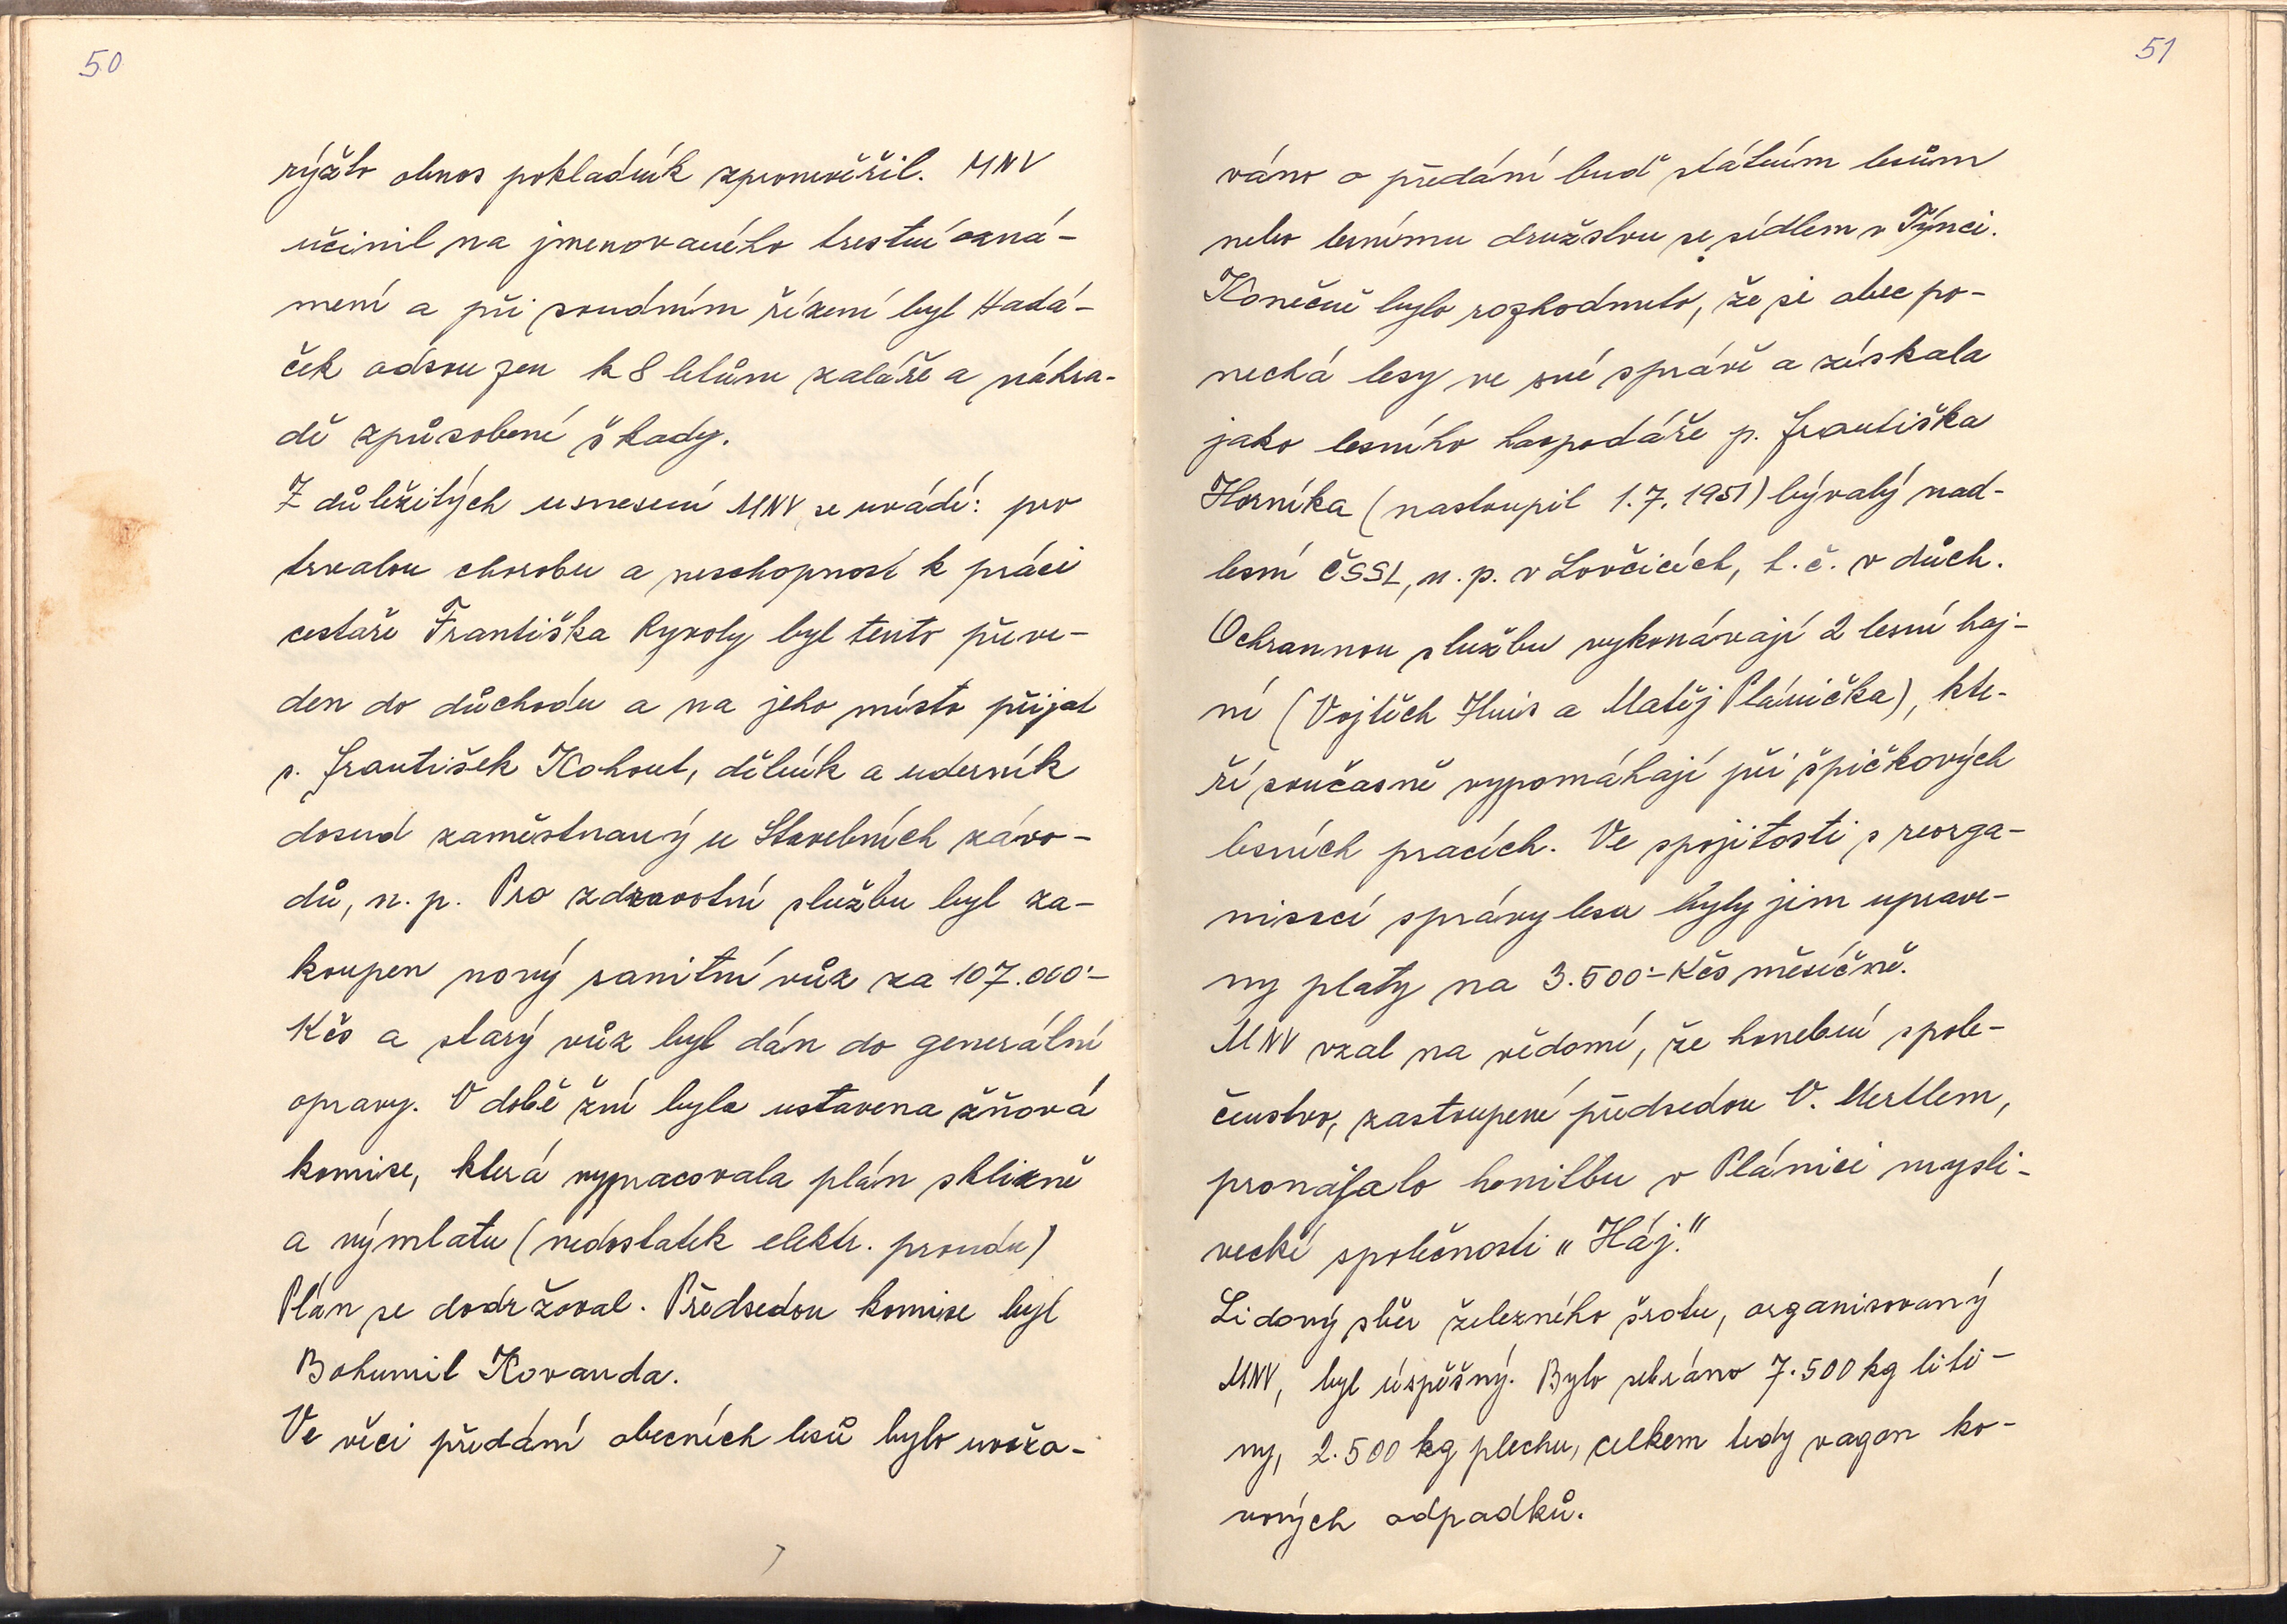 50
rýžto obnos pokladník zpronevěřil. MNV
učinil na jmenovaného trestní ozná-
mení a při soudním řízení byl Hadá-
ček odsouzen k 8 letům žaláře a náhra-
dě způsobení škody.
Z důležitých usnesení MNV se uvádí: pro
trvalou chorobu a neschopnost k práci
cestaře Františka Ryvoly byl tento převe-
den do důchodu a na jeho místo přijat
s. František Kohout, dělník a úderník
dosud zaměstnaný u Stavebních závo-
dů, n. p. Pro zdravotní službu byl za-
koupen nový sanitní vůz za 107.000·-
Kčs a starý vůz byl dán do generální
opravy. V době žní byla ustavena žňová
komise, která vypracovala plán sklizně
a výmlatu (nedostatek elektr. proudu)
Plán se dodržoval. Předsedou komise byl
Bohumil Kovanda.
Ve věci předání obecních lesů bylo uvažo-
51
váno o předání buď státním lesům
nebo lesnímu družstvu se sídlem v Týnci.
Konečně bylo rozhodnuto, že si obec po-
nechá lesy ve své správě a získala
jako lesního hospodáře p. Františka
Horníka (nastoupil 1.7.1951) bývalý nad-
lesní ČSSL, n. p. v Lovčicích, t. č. v důch.
Ochrannou službu vykonávají 2 lesní haj-
ní (Vojtěch Huis a Matěj Plánička), kte-
ří současně vypomáhají při špičkových
lesních pracích. Ve spojitosti s reorga-
nisací správy lesa byly jim uprave-
ny platy na 3.500·- Kčs měsíčně.
MNV vzal na vědomí, že honební spole-
čenstvo, zastoupené předsedou V. Mertlem,
pronajalo honitbu v Plánici mysli-
vecké společnosti "Háj."
Lidový sběr železného šrotu, organisovaný
MNV, byl úspěšný. Bylo sebráno 7.500 kg liti-
ny, 2.500 kg plechu, celkem tedy vagon ko-
vových odpadků.